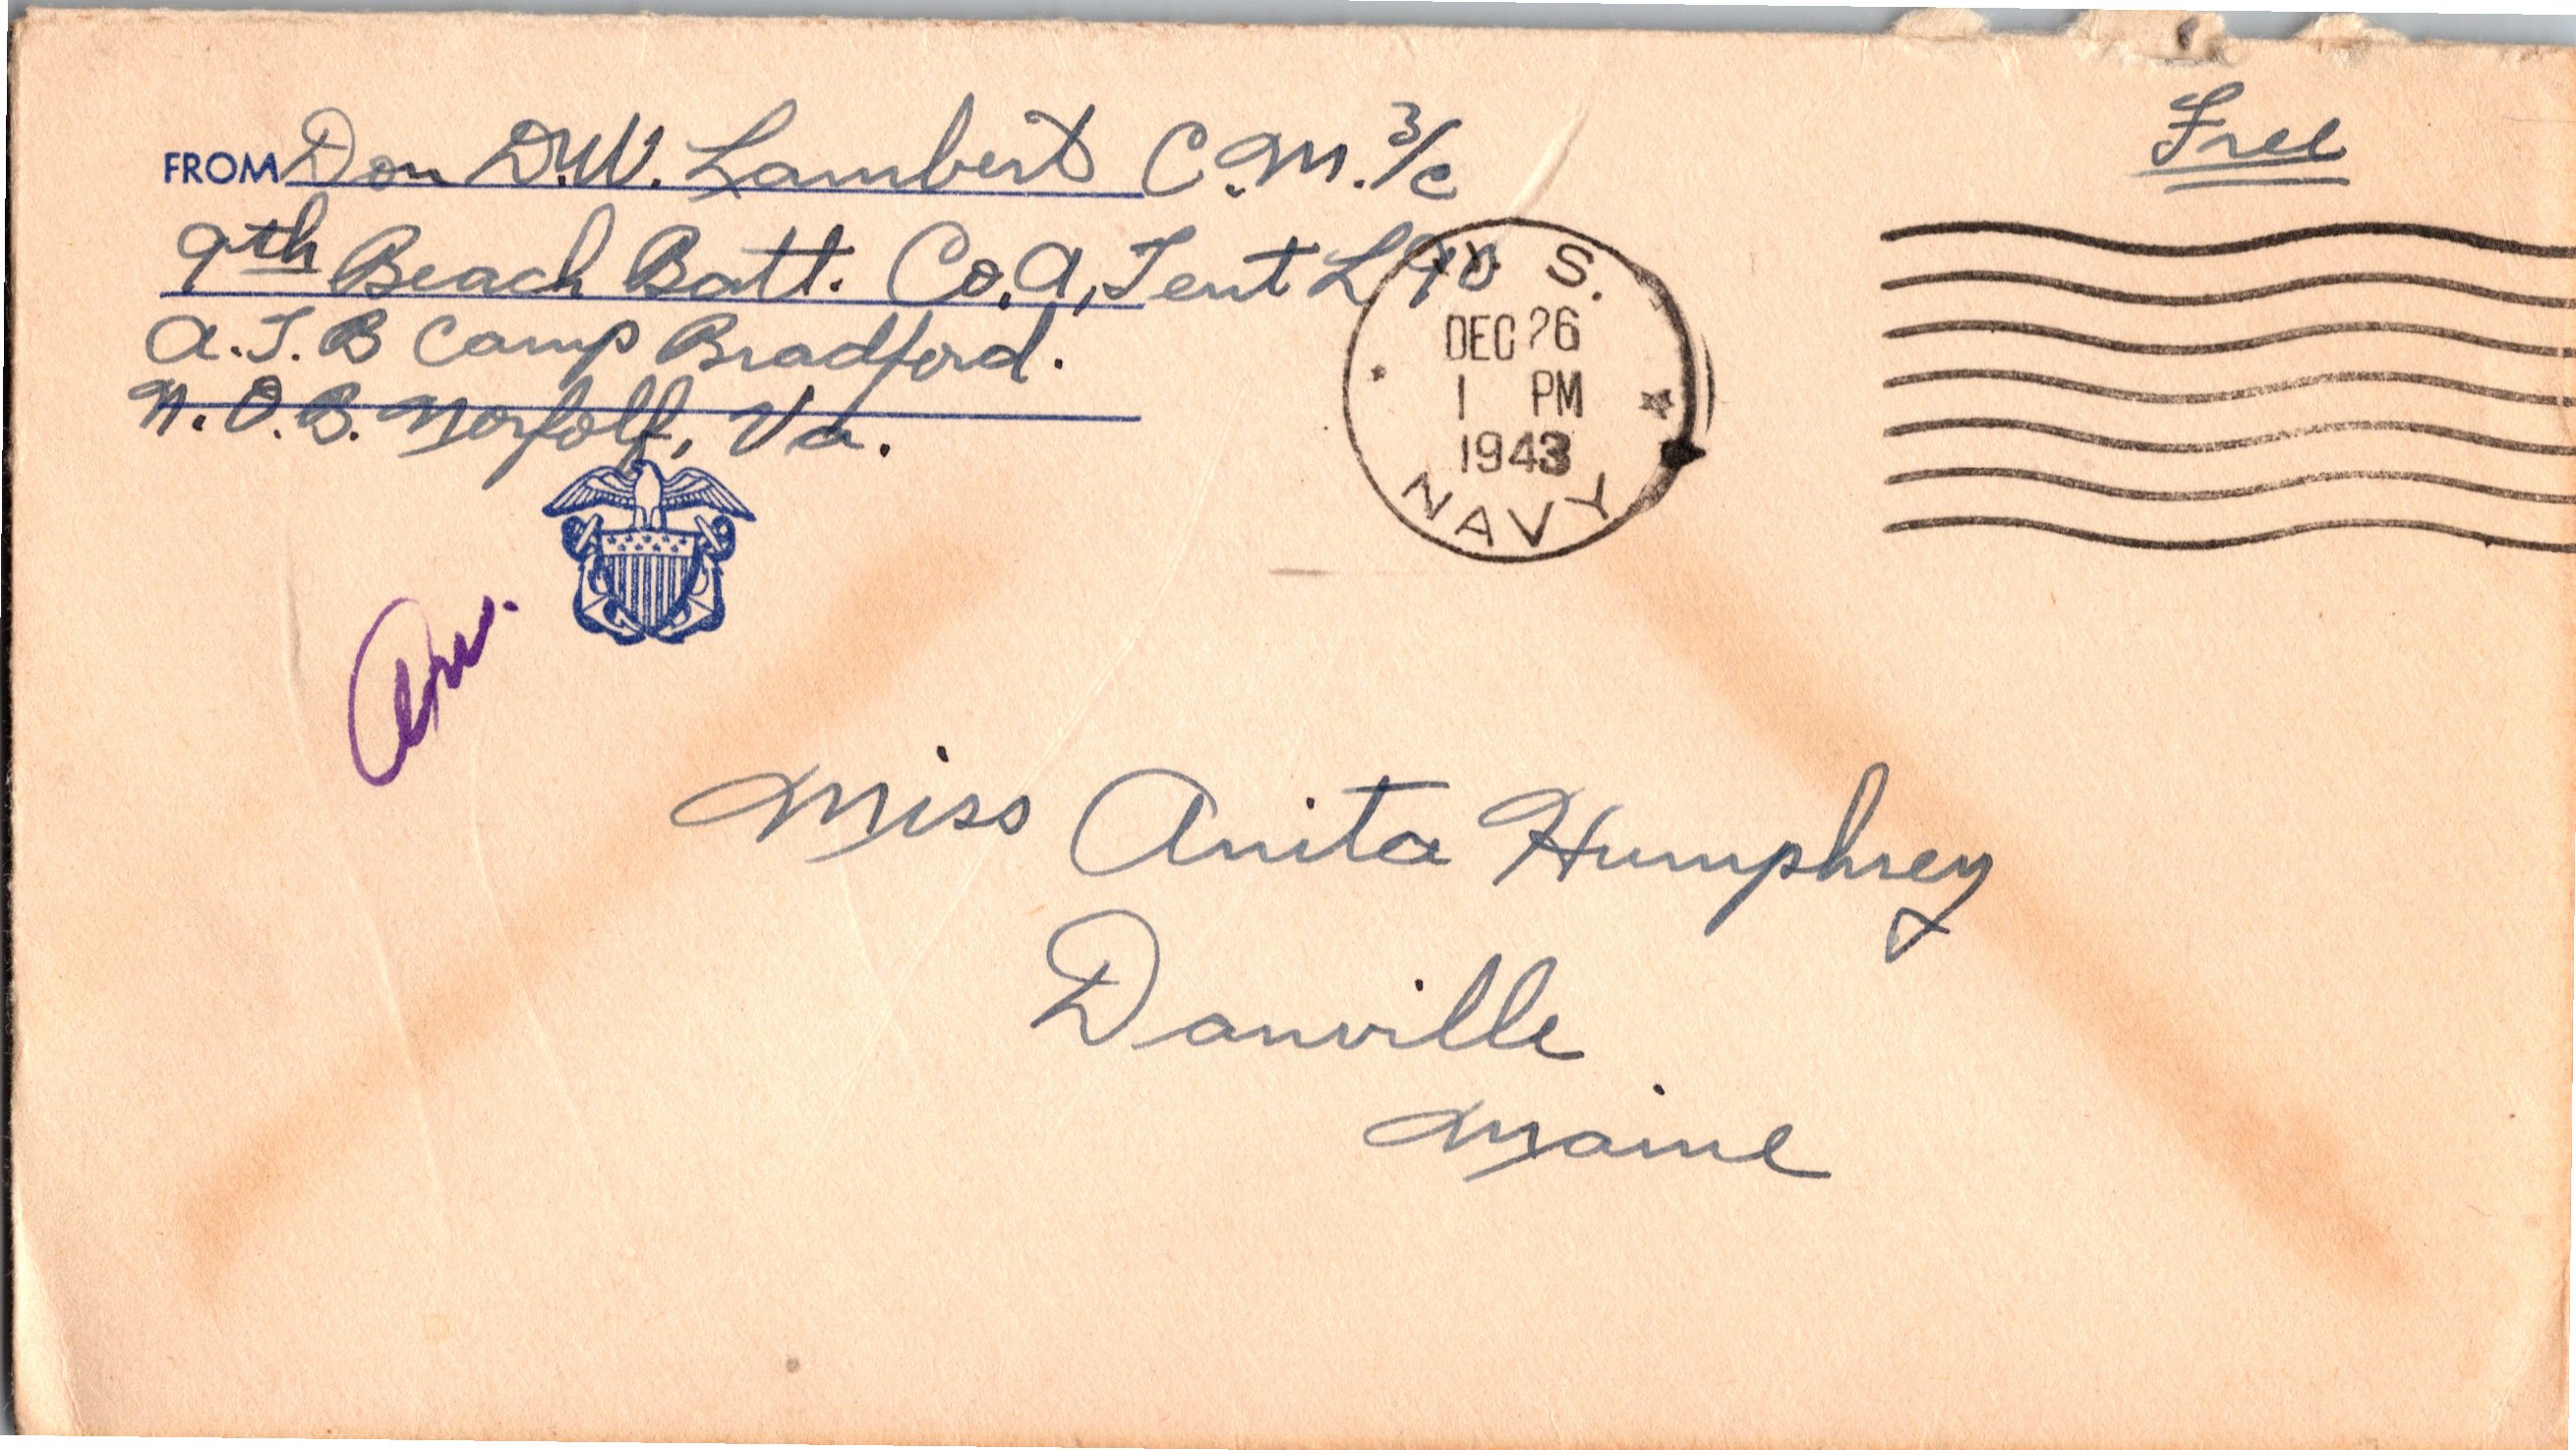 Free
FROM Don D.W. Lambert C.M. 3/c
9th Beach Batt. Co. A, Tent L 90
A.T.B Camp Bradford.
N.O.B. Norfolk, Va.
U. S.
DEC 26
1 PM
1943
NAVY
Miss Anita Humphrey
Danville
Maine